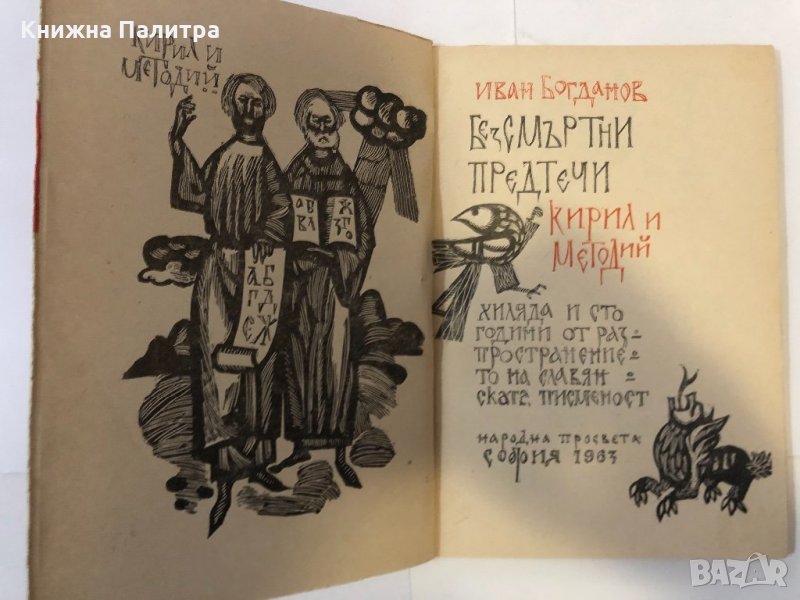 Книжна Палитра
КИРИЛ И
МЕТОДИЙ
А Б
В А
Ж
З Г О
А Б
Г Д
Е Ж
ИВАН БОГДАНОВ
БЕЗСМЪРТНИ
ПРЕДТЕЧИ
КИРИЛ И
МЕТОДИЙ
ХИЛЯДА И СТО
ГОДИНИ ОТ РАЗ-
ПРОСТРАНЕНИЕ-
ТО НА СЛАВЯН-
СКАТА ПИСМЕНОСТ
НАРОДНА ПРОСВЕТА
СОФИЯ 1963
BAZAR